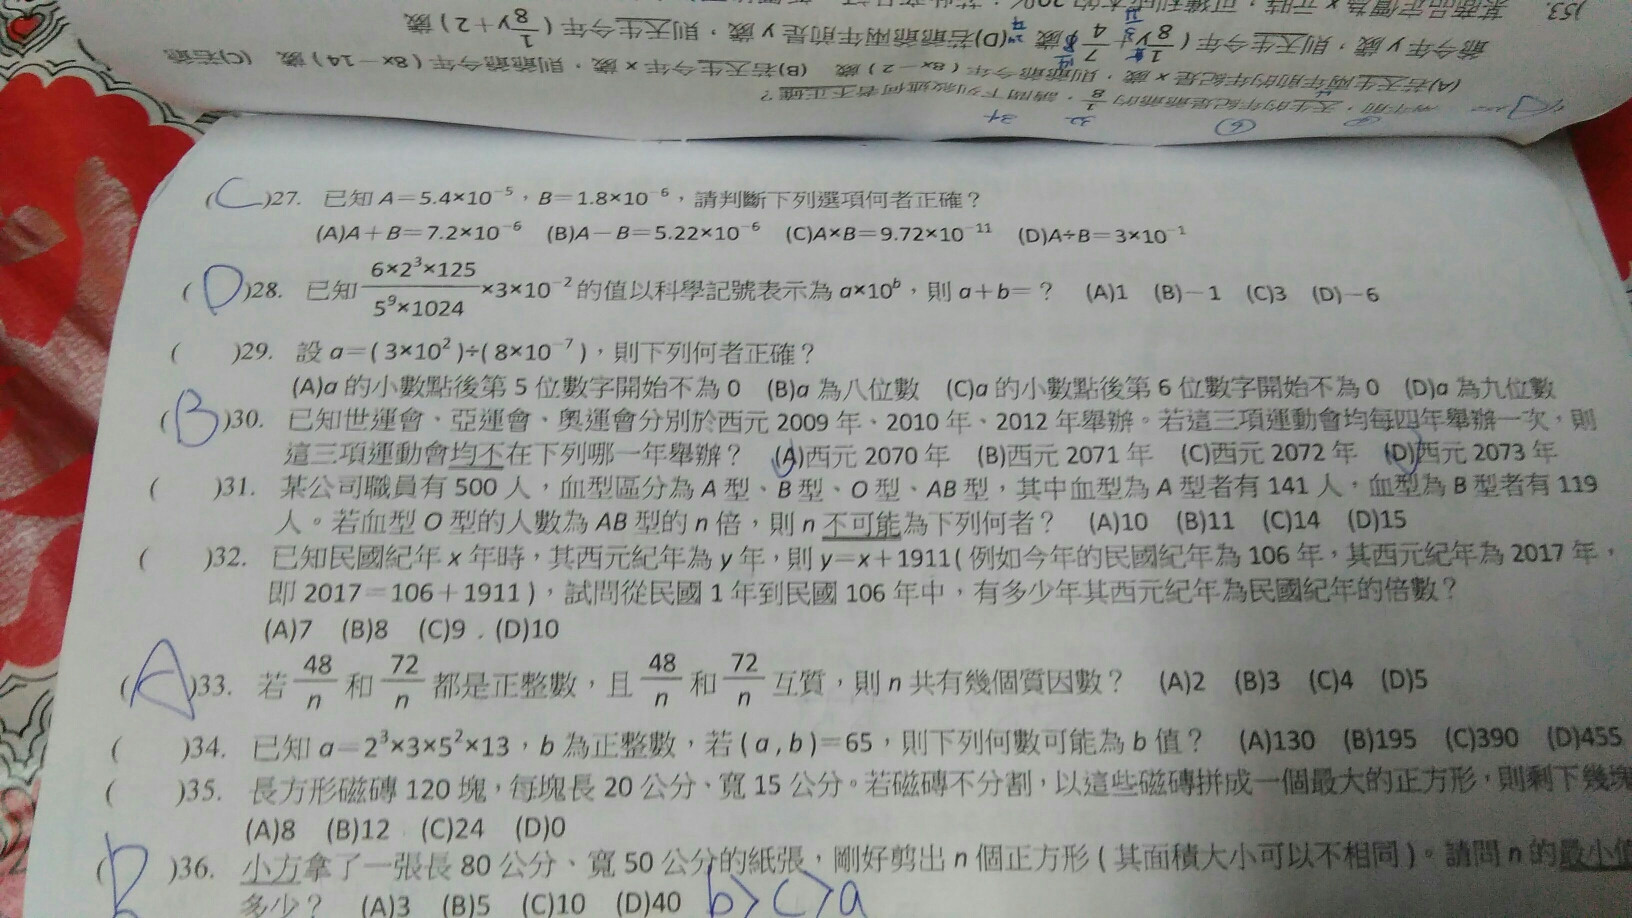 (C)27. 已知 A=5.4×10⁻⁵，B=1.8×10⁻⁶，請判斷下列選項何者正確？
(A)A+B=7.2×10⁻⁶ (B)A-B=5.22×10⁻⁶ (C)A×B=9.72×10⁻¹¹ (D)A÷B=3×10⁻¹
(D)28. 已知 6×2³×125/5⁹×1024 ×3×10⁻² 的值以科學記號表示為 a×10ᵇ，則 a+b=？ (A)1 (B)-1 (C)3 (D)-6
( )29. 設 a=(3×10²)÷(8×10⁻⁷)，則下列何者正確？
(A)a 的小數點後第 5 位數字開始不為 0 (B)a 為八位數 (C)a 的小數點後第 6 位數字開始不為 0 (D)a 為九位數
(B)30. 已知世運會、亞運會、奧運會分別於西元 2009 年、2010 年、2012 年舉辦。若這三項運動會均每四年舉辦一次，則
這三項運動會均不在下列哪一年舉辦？ (A)西元 2070 年 (B)西元 2071 年 (C)西元 2072 年 (D)西元 2073 年
( )31. 某公司職員有 500 人，血型區分為 A 型、B 型、O 型、AB 型，其中血型為 A 型者有 141 人，血型為 B 型者有 119
人。若血型 O 型的人數為 AB 型的 n 倍，則 n 不可能為下列何者？ (A)10 (B)11 (C)14 (D)15
( )32. 已知民國紀年 x 年時，其西元紀年為 y 年，則 y=x+1911(例如今年的民國紀年為 106 年，其西元紀年為 2017 年，
即 2017=106+1911)，試問從民國 1 年到民國 106 年中，有多少年其西元紀年為民國紀年的倍數？
(A)7 (B)8 (C)9 (D)10
(A)33. 若 48/n 和 72/n 都是正整數，且 48/n 和 72/n 互質，則 n 共有幾個質因數？ (A)2 (B)3 (C)4 (D)5
( )34. 已知 a=2³×3×5²×13，b 為正整數，若(a,b)=65，則下列何數可能為 b 值？ (A)130 (B)195 (C)390 (D)455
( )35. 長方形磁磚 120 塊，每塊長 20 公分、寬 15 公分。若磁磚不分割，以這些磁磚拼成一個最大的正方形，則剩下幾塊
(A)8 (B)12 (C)24 (D)0
( )36. 小方拿了一張長 80 公分、寬 50 公分的紙張，剛好剪出 n 個正方形(其面積大小可以不相同)。請問 n 的最小值
多少？ (A)3 (B)5 (C)10 (D)40 b>c>a